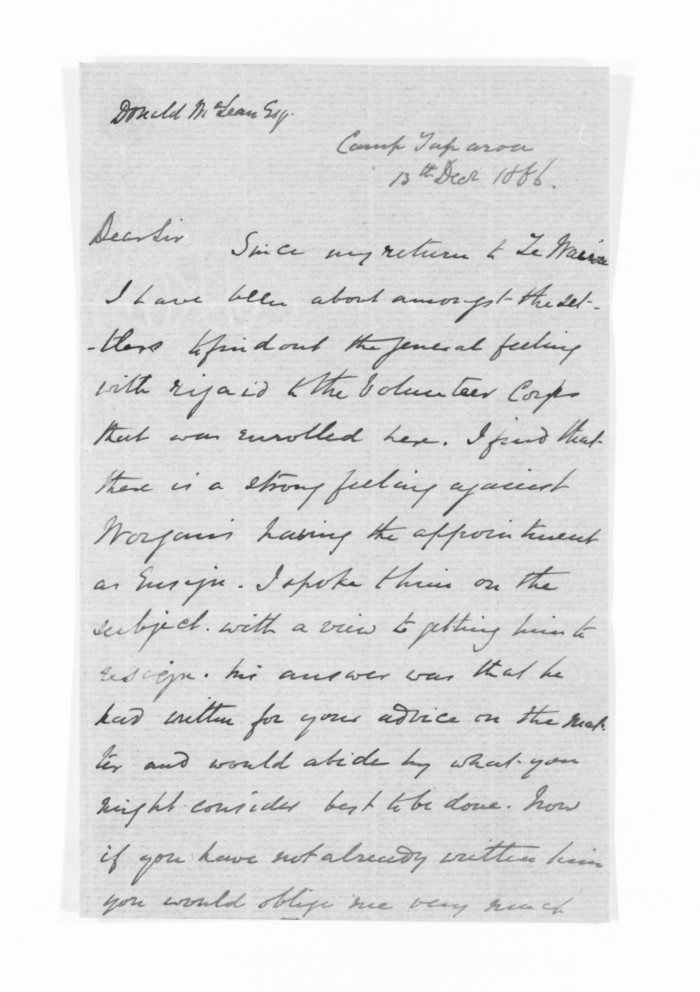 Donald McLean Esq.
Camp Taparoa
13th Decr 1866.
Dear Sir Since my return to Te Wairoa
I have been about amongst the set-
-tlers to find out the general feeling
with regard to the Volunteer Corps
that was enrolled here. I find that
there is a strong feeling against
Worgan's having the appointment
as Ensign. I spoke to him on the
subject. with a view to getting him to
resign. his answer was that he
had written for your advice on the mat-
ter and would abide by what you
might consider best to be done. Now
if you have not already written him
you would oblige me very much